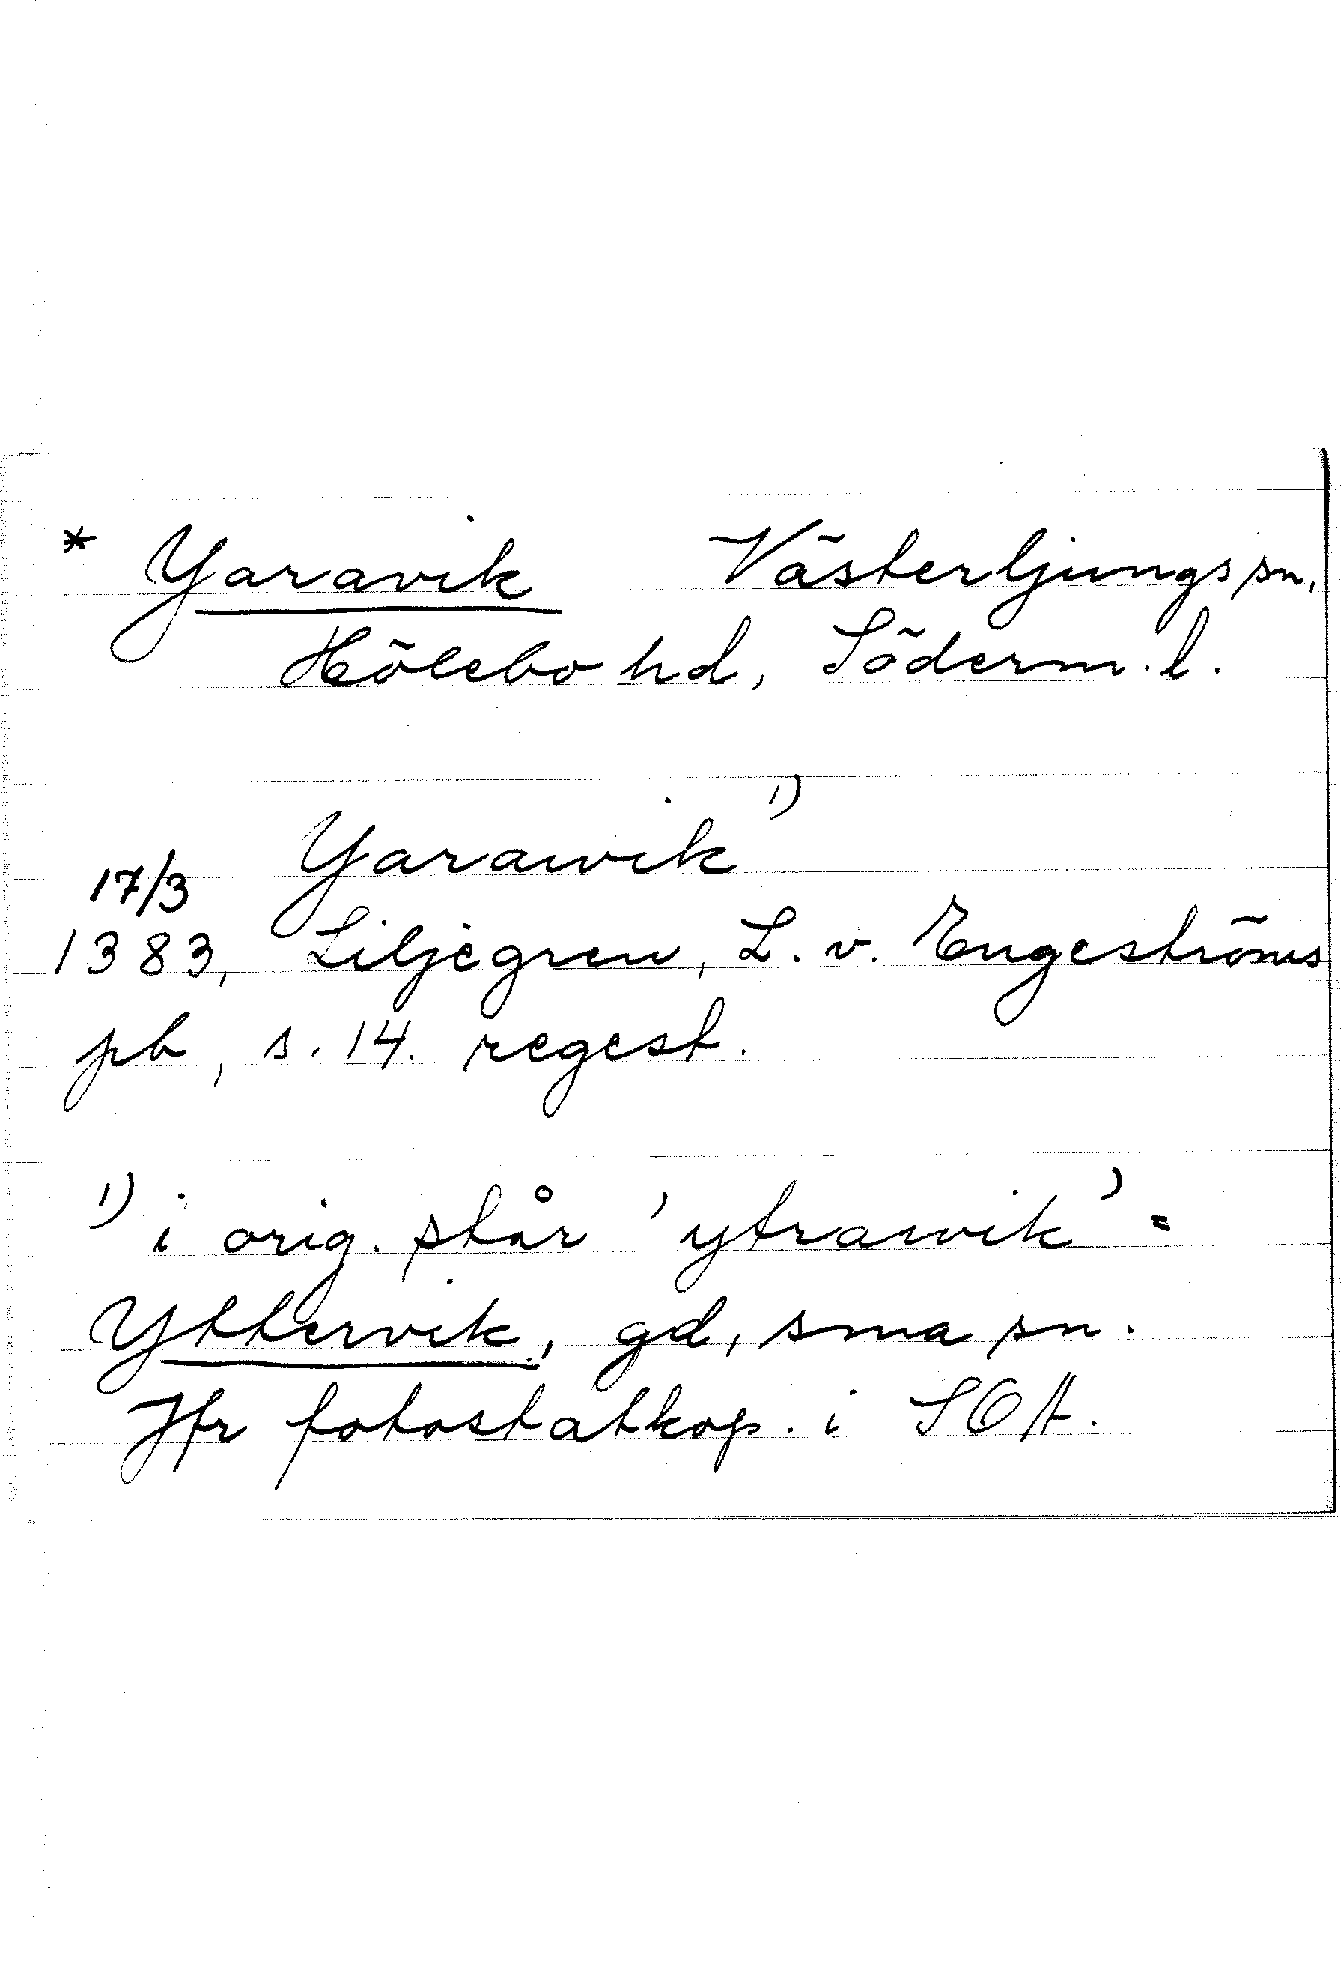 * Yaravik Västerljungs sn,
Hölebo hd, Söderm. l.
Yarawik 1)
17/3
1383, Liljegren, L. v. Engeströms
pb, s. 14. regest.
1) i orig. står 'ytrawik' =
Yttervik, gd, sma sn.
Jfr fotostatkop. i SOA.